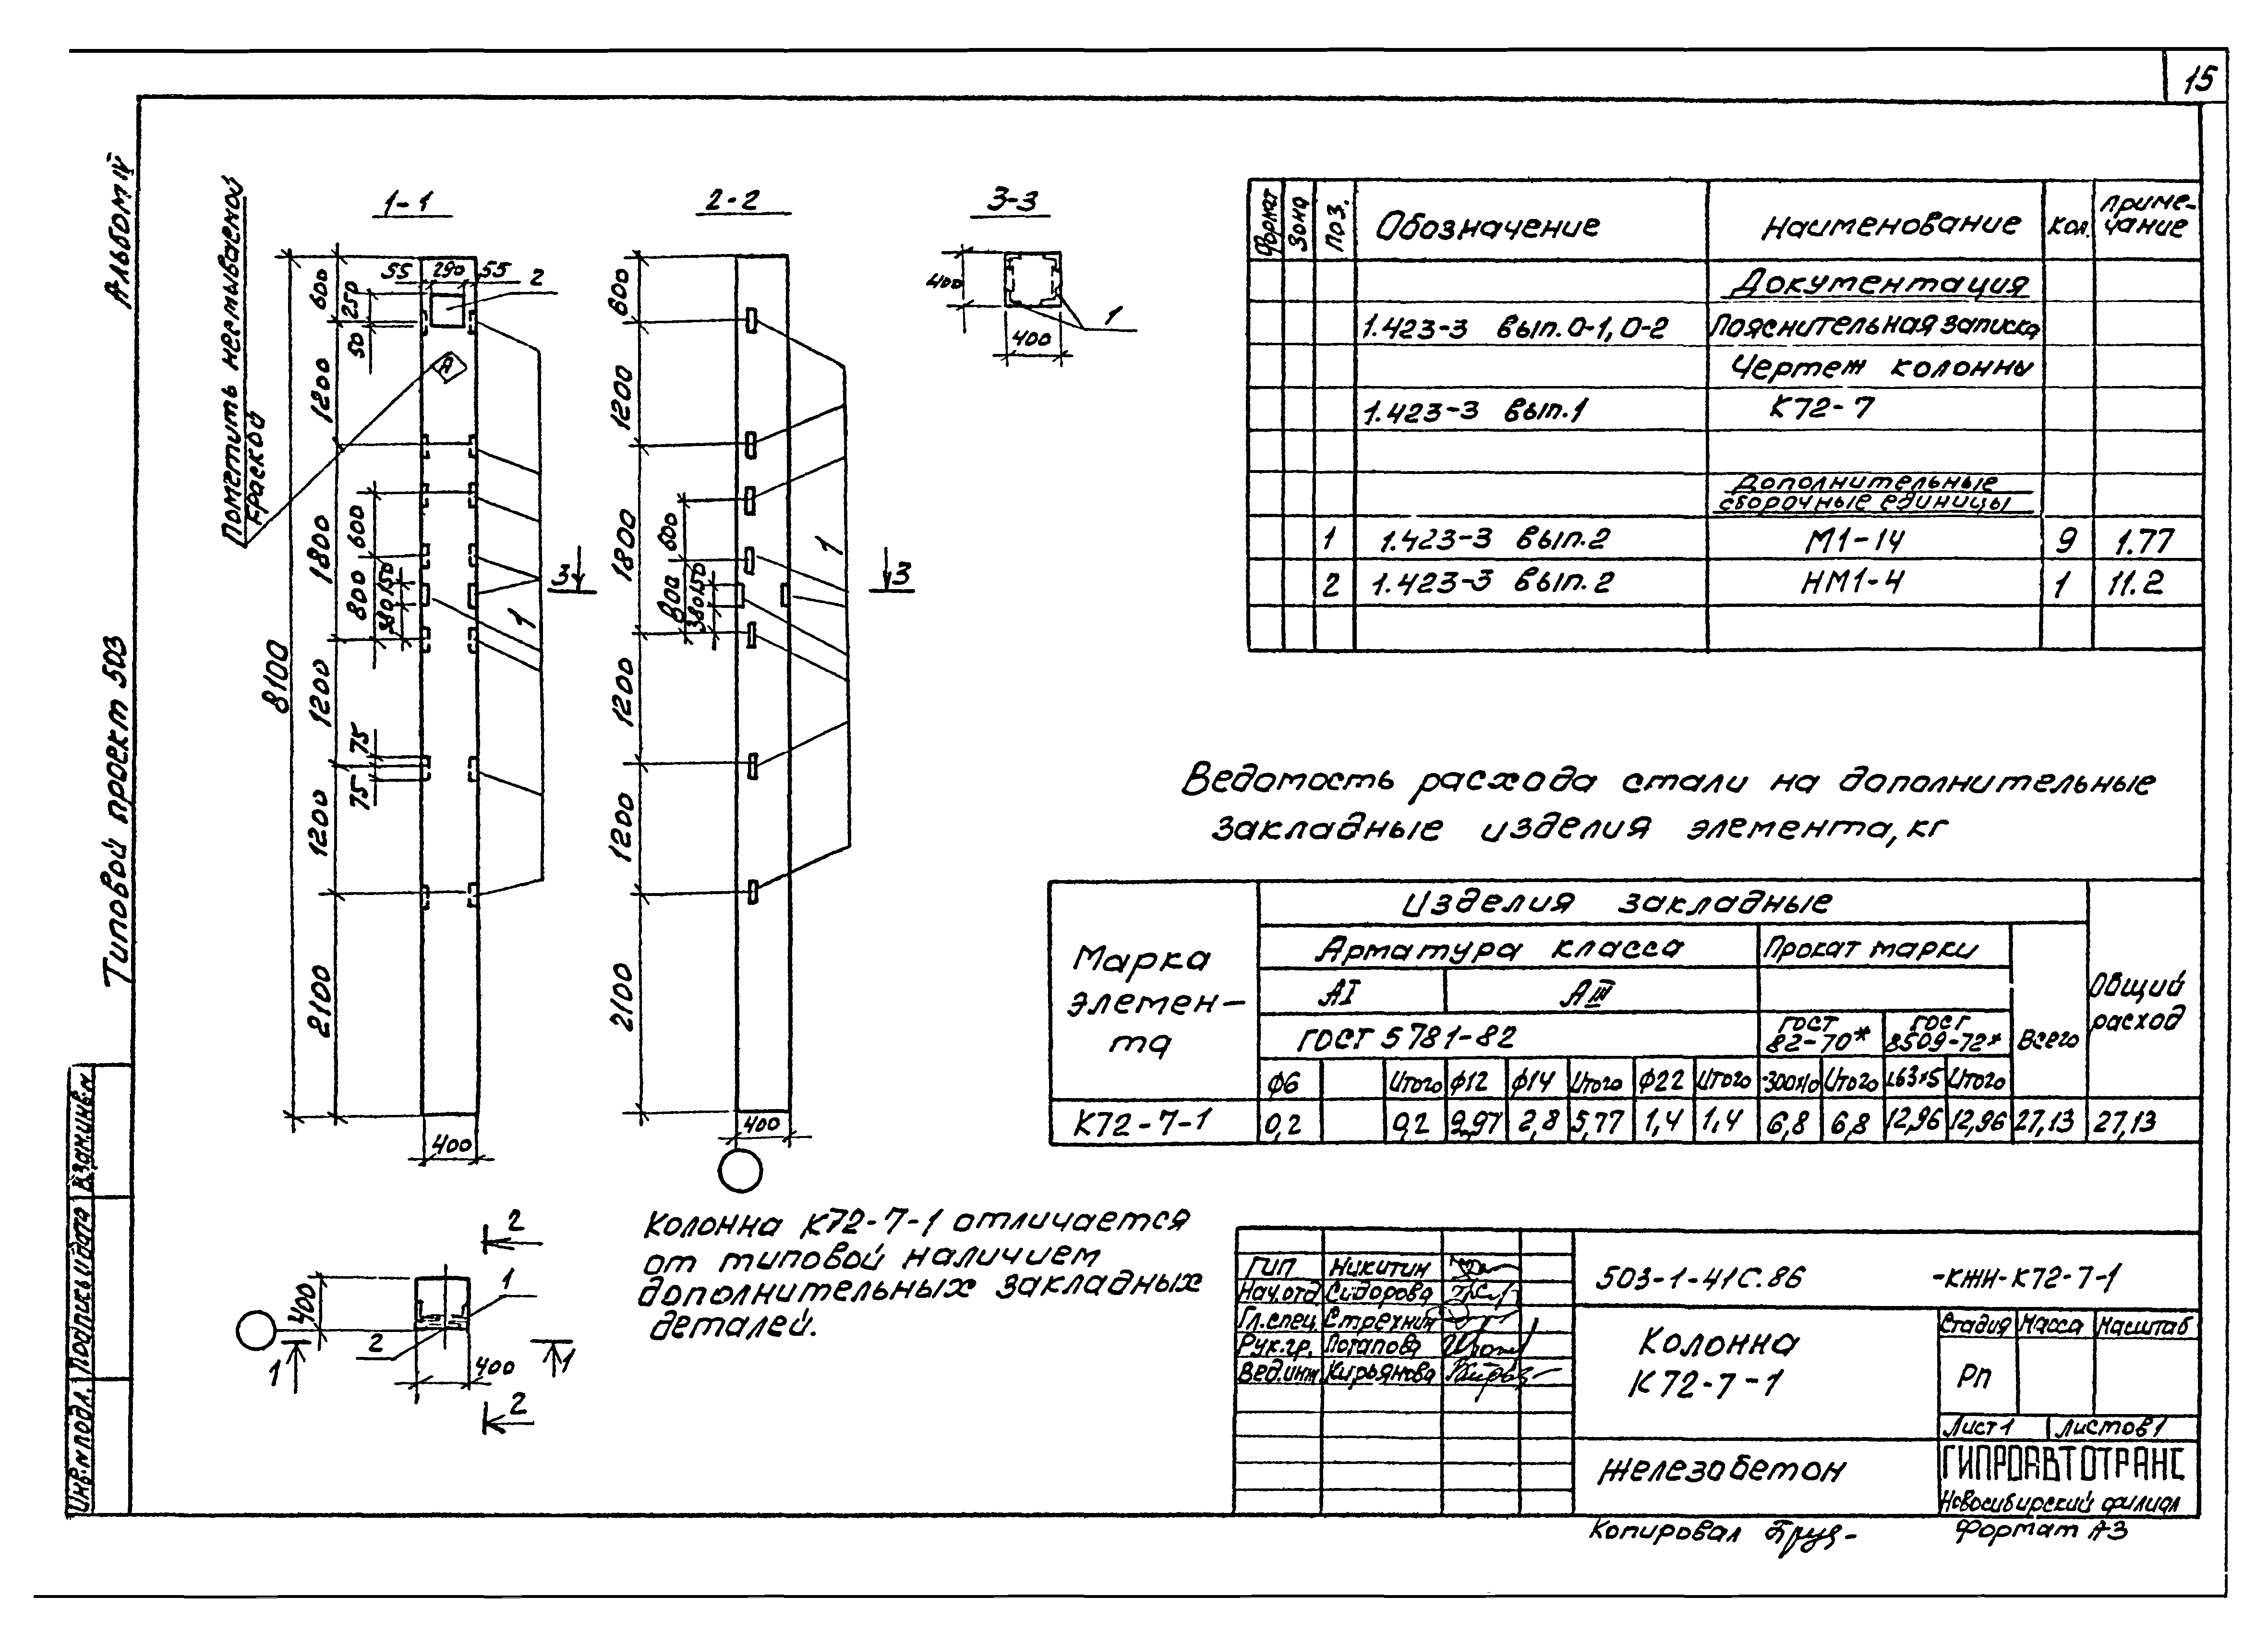 15
Альбом IV
Типовой проект 503
Инв.№ подл. Подпись и дата Взам.инв.№
Пометить несмываемой
краской
1-1
55 290 55
2
600
250
50
А
1200
1800
600
800
150
380
1200
75
75
1200
2100
8100
1
3
400
2-2
600
1200
1800
600
800
150
380
1200
1200
2100
1
3
400
3-3
400
400
1
2
400
1
2
400
1
1
2
Колонна К72-7-1 отличается
от типовой наличием
дополнительных закладных
деталей.
Формат Зона Поз. Обозначение Наименование Кол. Приме-
чание
Документация
1.423-3 вып.0-1, 0-2 Пояснительная записка
Чертеж колонны
1.423-3 вып.1 К72-7
Дополнительные
сборочные единицы
1 1.423-3 вып.2 М1-14 9 1.77
2 1.423-3 вып.2 НМ1-4 1 11.2
Ведомость расхода стали на дополнительные
закладные изделия элемента, кг
Марка
элемен-
та
Изделия закладные
Общий
расход
Арматура класса Прокат марки
Всего
АI АIII
ГОСТ 5781-82 ГОСТ
82-70* ГОСТ
8509-72*
ф6 Итого ф12 ф14 Итого ф22 Итого -300х10 Итого L63х5 Итого
К72-7-1 0,2 0,2 2,97 2,8 5,77 1,4 1,4 6,8 6,8 12,96 12,96 27,13 27,13
ГИП Никитин
Нач.отд. Сидорова
Гл.спец. Стрехнин
Рук.гр. Потапова
Вед.инж. Кирьянова
503-1-41С.86 -КЖИ-К72-7-1
Колонна
К72-7-1
Стадия Масса Масштаб
РП
Лист 1 Листов 1
Железобетон
ГИПРОАВТОТРАНС
Новосибирский филиал
Копировал Формат А3